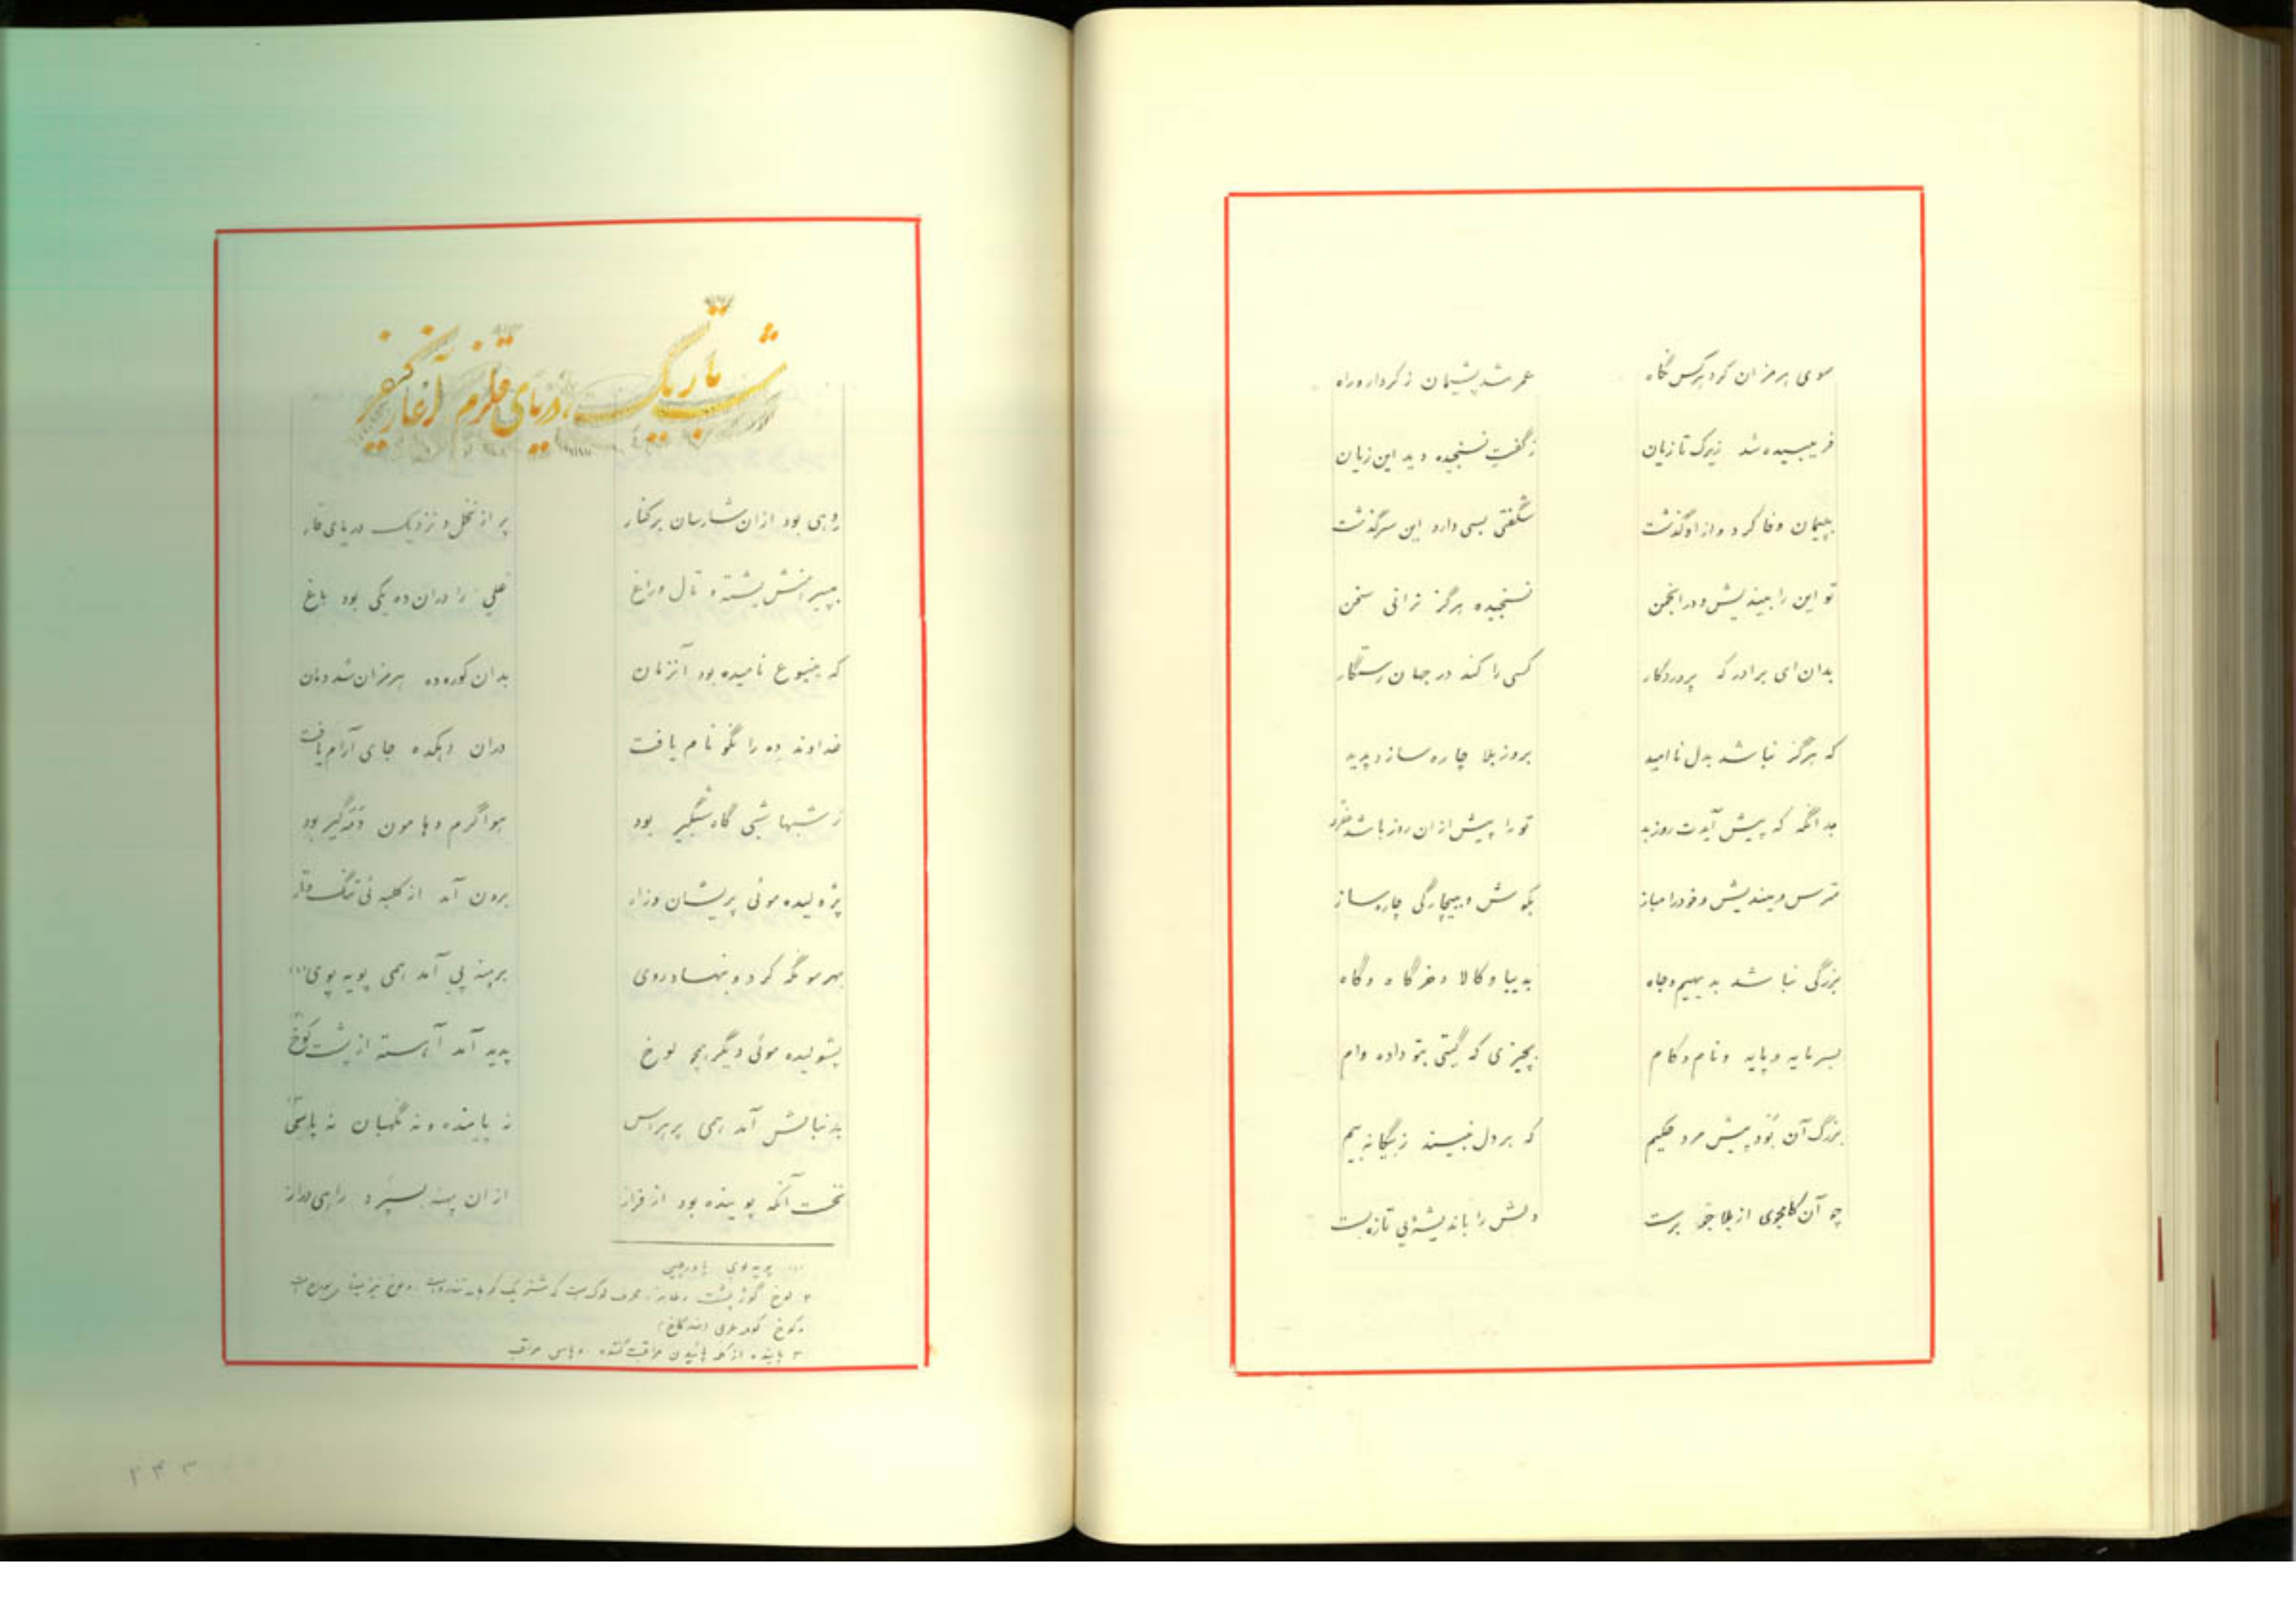 سوی هرمزان کرد هرکس نگاه عمر شد پشیمان ز کردار و راه
فریبیده شد زیرک تازیان ز گفت نسنجیده دید این زیان
بپیمان وفا کرد و از او گذشت شگفتی بسی دارد این سرگذشت
تو این را بیندیش و در انجمن نسنجیده هرگز نرانی سخن
بدان ای برادر که پروردگار کسی را کند در جهان رستگار
که هرگز نباشد بدل ناامید بروز بلا چاره سازد پدید
بدانگه که پیش آیدت روز بد تو را پیش از آن روز باشد
مترس و میندیش و خود را مباز بکوش و ببیچارگی چاره ساز
بزرگی نباشد بدیهیم و جاه بدیبا و کالا و خرگاه و گاه
بسرمایه و پایه و نام و کام بچیزی که گیتی بتو داده وام
بزرگ آن بود پیش مرد حکیم که بر دل ز بیگانه بیم
چو آن کامجوی از بلا برست دلش را باندیشه‌ی تازه بست
شب تاریک، دریای قلزم آغاز
دهی بود از آن شارسان برکنار پر از نخل و نزدیک دریای قار
بپیرامنش پشته و تال و راغ علی را در آن ده یکی بود باغ
که ینبوع نامیده بود آنزمان بدان کوره ده هرمزان شد دمان
خداوند ده را نکو نام یافت در آن دهکده جای آرام یافت
ز شبها شبی گاه شبگیر بود هوا گرم و هامون گیر بود
پژولیده موئی پریشان و زار برون آمد از کلبه ئی تنگ و تار
بهر سو نگه کرد و بنهاد روی برهنه پی آمد همی پویه پوی (۱)
پشولیده موئی دیگر همچو لوخ پدید آمد آهسته از پشت کوخ
بدنبالش آمد همی پر هراس نه پاینده و نه نگهبان نه پاس
نخست آنکه پوینده بود از فراز از آن پهنه بسپرد راهی دراز
پویه پوی پاورچین
۲ لوخ گوژ پشت
و کوخ
۳ پاینده از پائیدن مراقبت کننده و پاس مراقب
۲۴۳